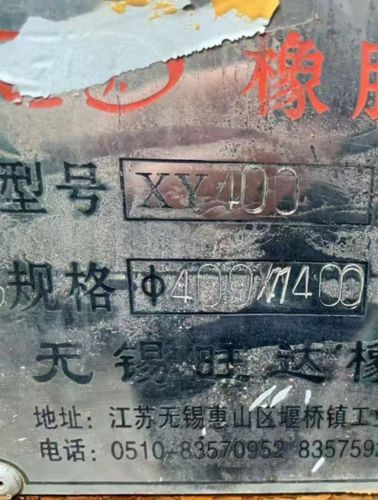 橡胶
型号 XY400
规格 Φ400/1400
无锡旺达橡
地址: 江苏无锡惠山区堰桥镇工业
电话: 0510-83570952 8357592